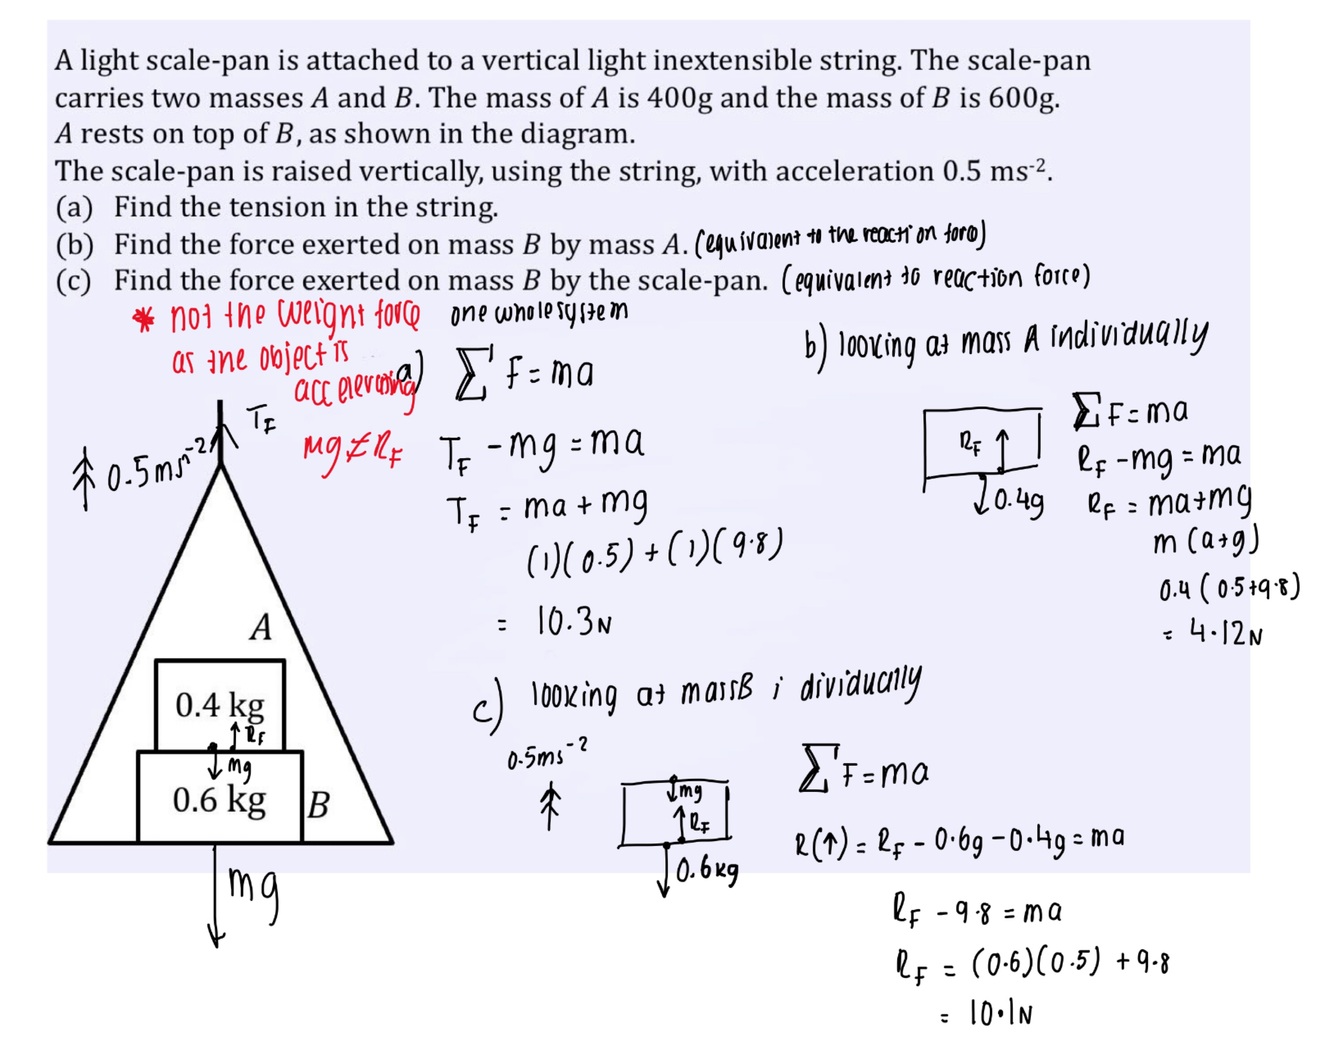 A light scale-pan is attached to a vertical light inextensible string. The scale-pan
carries two masses A and B. The mass of A is 400g and the mass of B is 600g.
A rests on top of B, as shown in the diagram.
The scale-pan is raised vertically, using the string, with acceleration 0.5 ms⁻².
(a) Find the tension in the string.
(b) Find the force exerted on mass B by mass A. (equivalent to the reaction force)
(c) Find the force exerted on mass B by the scale-pan. (equivalent to reaction force)
* not the weight force
as the object is
accelerating
mg ≠ R_F
one whole system
a) ∑F = ma
T_F - mg = ma
T_F = ma + mg
(1)(0.5) + (1)(9.8)
= 10.3N
b) looking at mass A individually
R_F
0.4g
∑F = ma
R_F - mg = ma
R_F = ma+mg
m (a+g)
0.4 (0.5+9.8)
= 4.12N
T_F
0.5ms⁻²
A
0.4 kg
R_F
mg
0.6 kg
B
mg
c) looking at mass B i dividually
0.5ms⁻²
mg
R_F
0.6kg
∑F = ma
R(↑) = R_F - 0.6g - 0.4g = ma
R_F - 9.8 = ma
R_F = (0.6)(0.5) + 9.8
= 10.1N